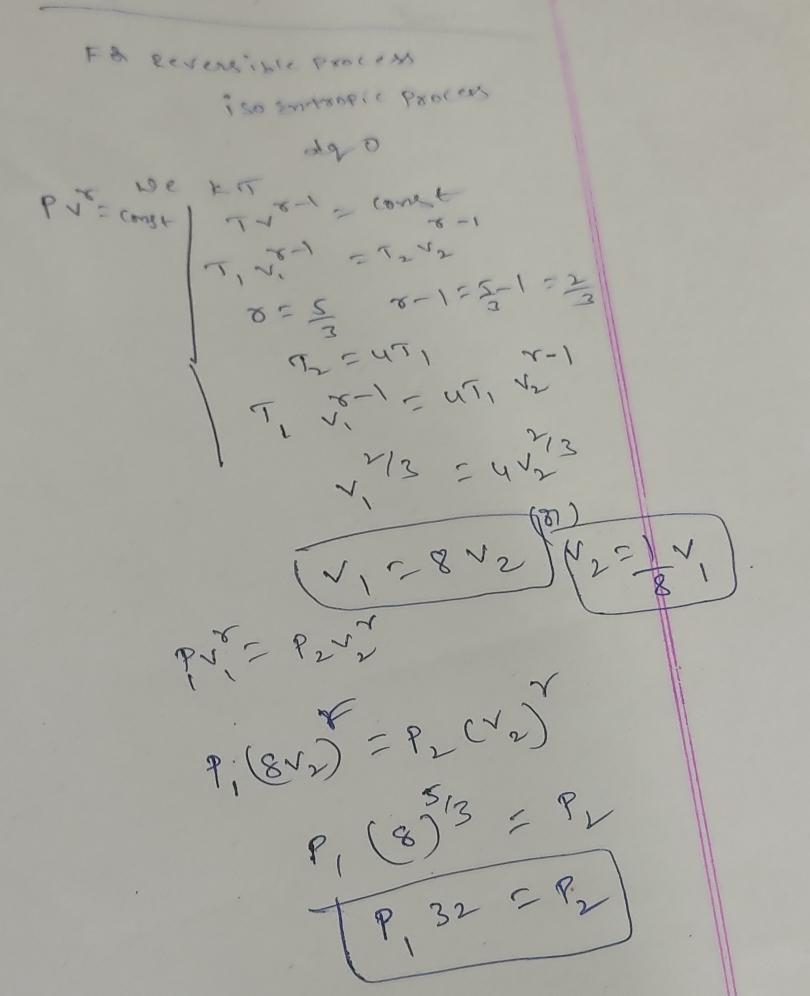 For Reversible process
isoentropic process
dq 0
We KT
PV^γ = const
TV^γ-1 = const
T₁ V₁^γ-1 = T₂ V₂^γ-1
γ = 5/3 γ-1 = 5/3 - 1 = 2/3
T₂ = 4T₁
T₁ V₁^γ-1 = 4T₁ V₂^γ-1
V₁^2/3 = 4V₂^2/3
V₁ = 8 V₂ (or) V₂ = 1/8 V₁
P₁V₁^γ = P₂V₂^γ
P₁(8V₂)^γ = P₂ (V₂)^γ
P₁ (8)^5/3 = P₂
P₁ 32 = P₂